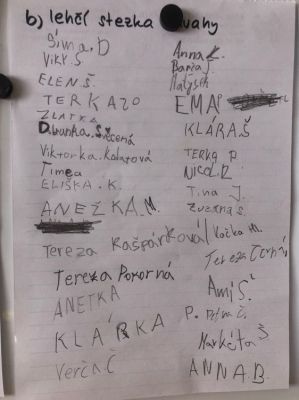 b) lehčí stezka vahy
Síma.D
VIKY.Š
ELEN.Š
TERKA
ZLATKA
Viktorka.Kolatová
Timea
ELIŠKA.K.
ANEŽKA.M.
Tereza Kašpárková
Tereza Pokorná
ANETKA
KLÁRKA
Verča Č
Anna K.
Bára J.
Matýsek
EMA
KLÁRA Š
TERKA P
Nicol.R
Tina J.
Zuzana S.
Kočka M.
Tereza Černá
Ami S.
Markéta Š
ANNA.B.